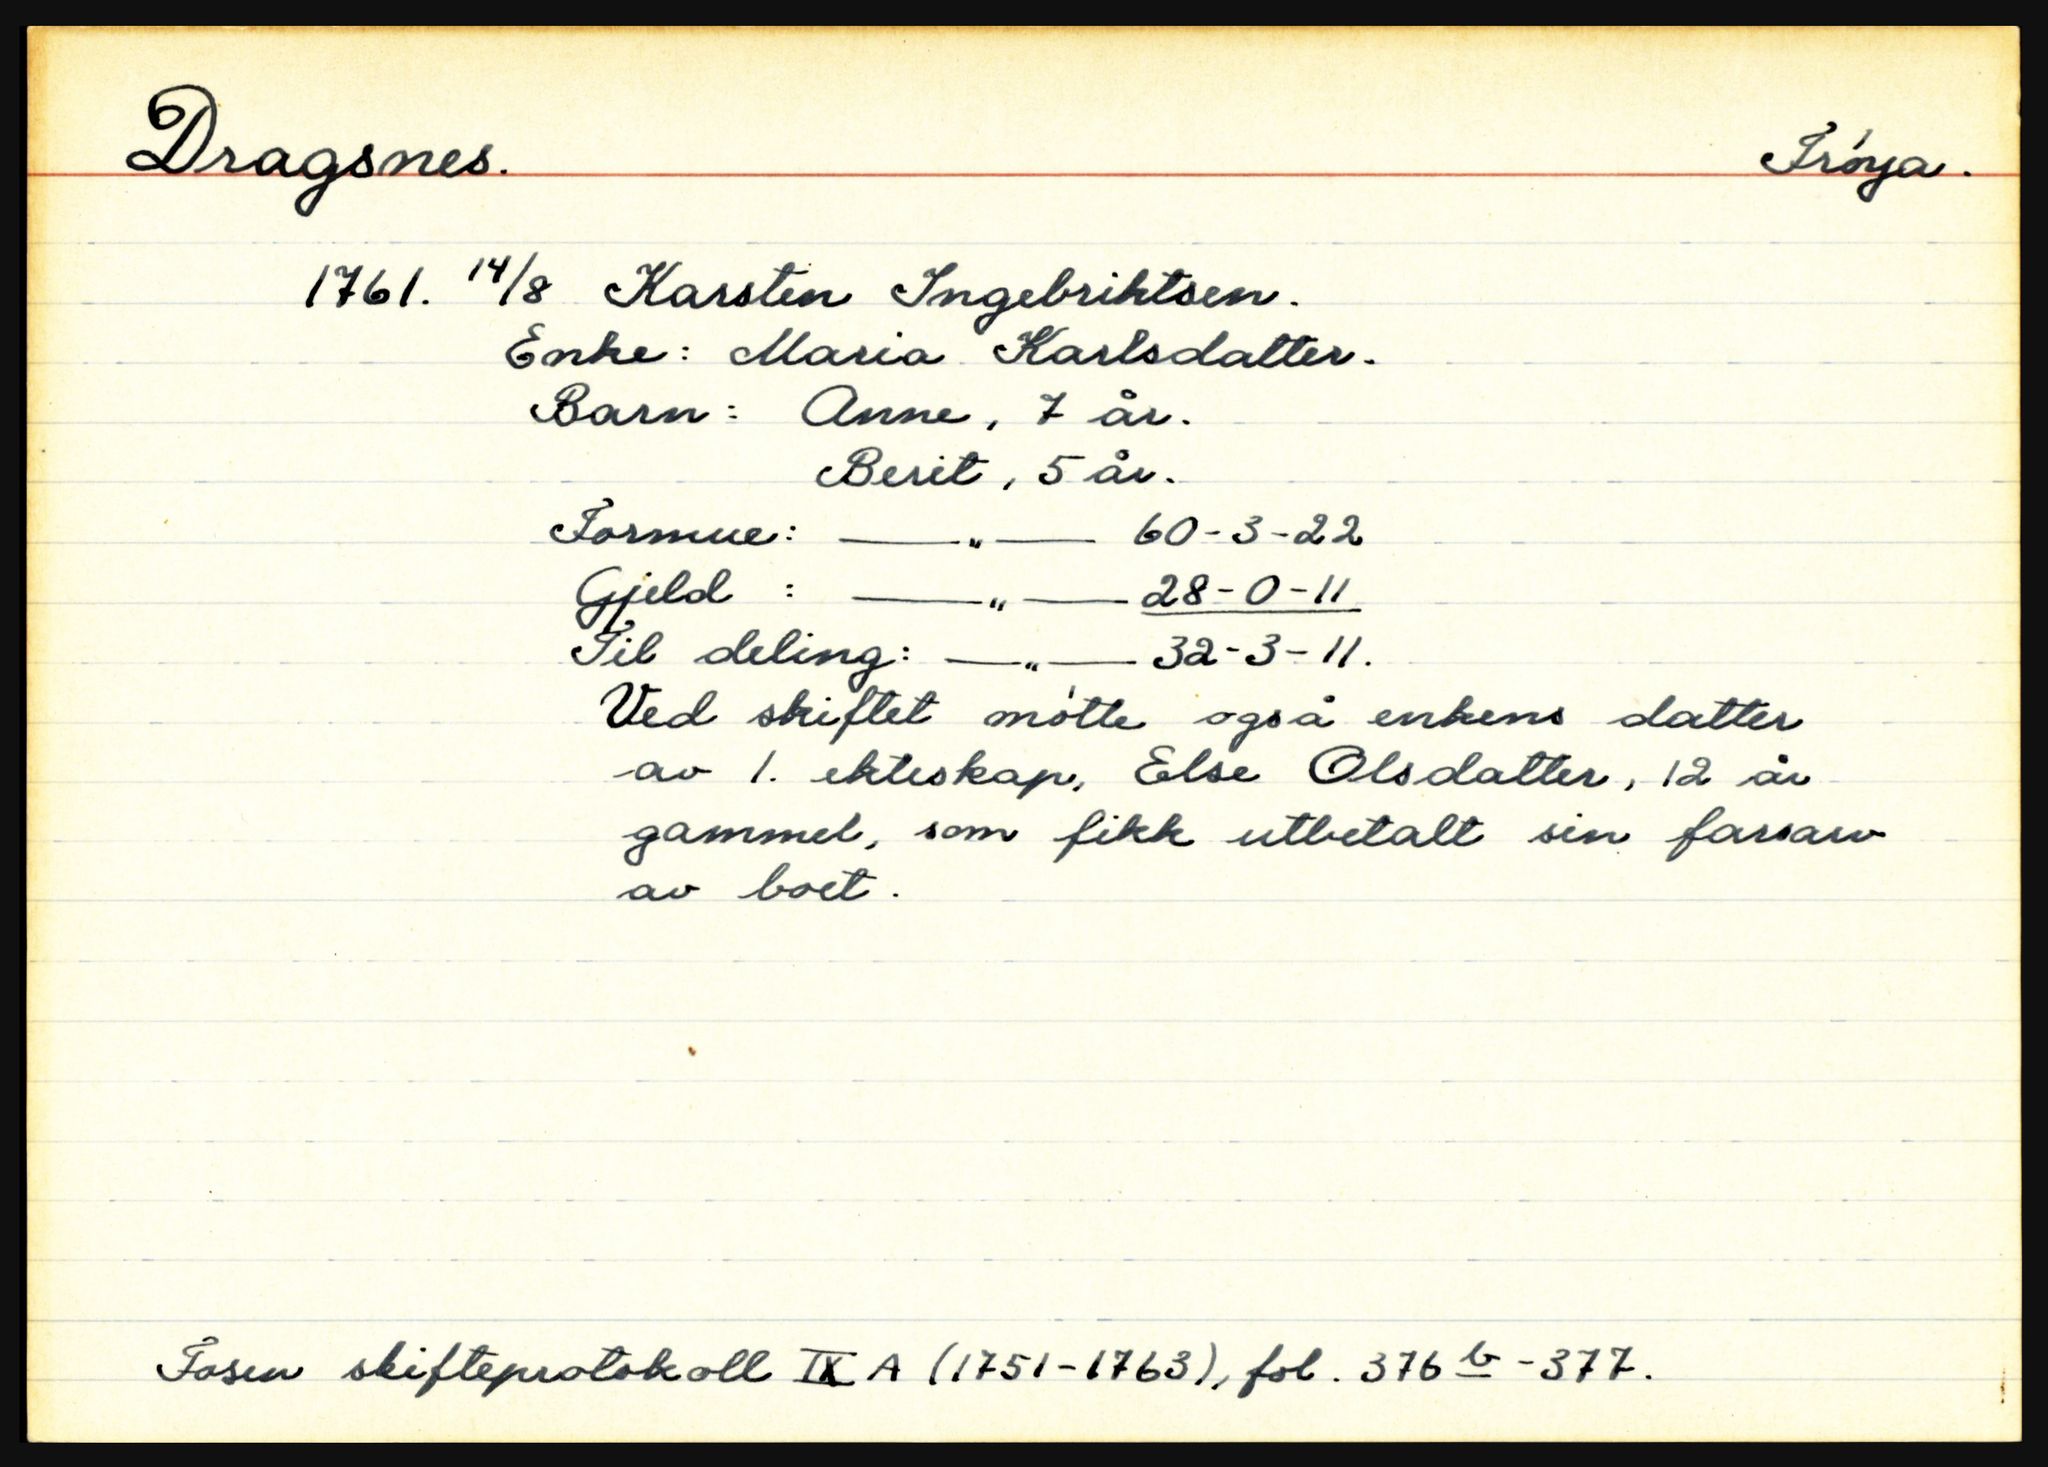 Dragsnes. Frøya.
1761. 14/8 Karsten Ingebriktsen.
Enke: Maria Karlsdatter.
Barn: Anne, 7 år.
Berit, 5 år.
Formue: —„— 60-3-22
Gjeld : —„— 28-0-11
Til deling: —„— 32-3-11.
Ved skiftet møtte også enkens datter
av 1. ekteskap, Else Olsdatter, 12 år
gammel, som fikk utbetalt sin farsarv
av boet.
Fosen skifteprotokoll IX A (1751-1763), fol. 376 b - 377.